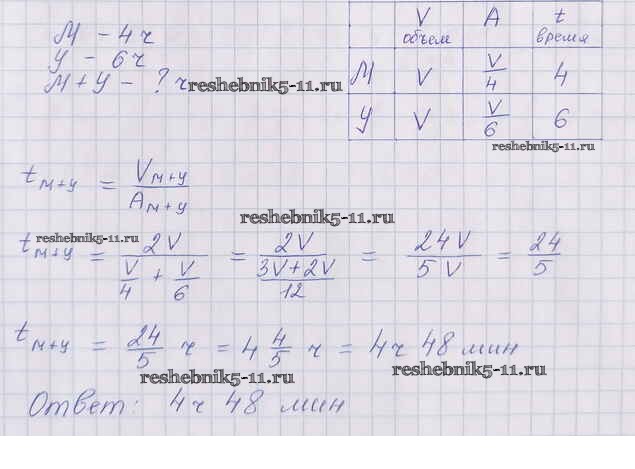 М – 4 ч
У – 6 ч
М + У – ? ч
reshebnik5-11.ru
V A t
объем время
М V V/4 4
У V V/6 6
reshebnik5-11.ru
t м+у = V м+у / A м+у
reshebnik5-11.ru
reshebnik5-11.ru
t м+у = 2V / (V/4 + V/6) = 2V / ((3V+2V)/12) = 24V / 5V = 24/5
t м+у = 24/5 ч = 4 4/5 ч = 4ч 48 мин
reshebnik5-11.ru
reshebnik5-11.ru
Ответ: 4ч 48 мин